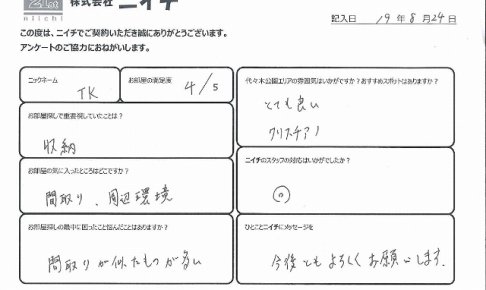 株式会社 ニイチ
niichi
記入日 19年8月24日
この度は、ニイチでご契約いただき誠にありがとうございます。
アンケートのご協力におねがいします。
ニックネーム
TK
お部屋の満足度
4/5
お部屋探しで重要視していたことは？
収納
お部屋の気に入ったところはどこですか？
間取り、周辺環境
お部屋探しの最中に困ったこと悩んだことはありますか？
間取りが似たものが多い
代々木公園エリアの雰囲気はいかがですか？おすすめスポットはありますか？
とても良い
クリスチアノ
ニイチのスタッフの対応はいかがでしたか？
◎
ひとことニイチにメッセージを
今後ともよろしくお願いします。